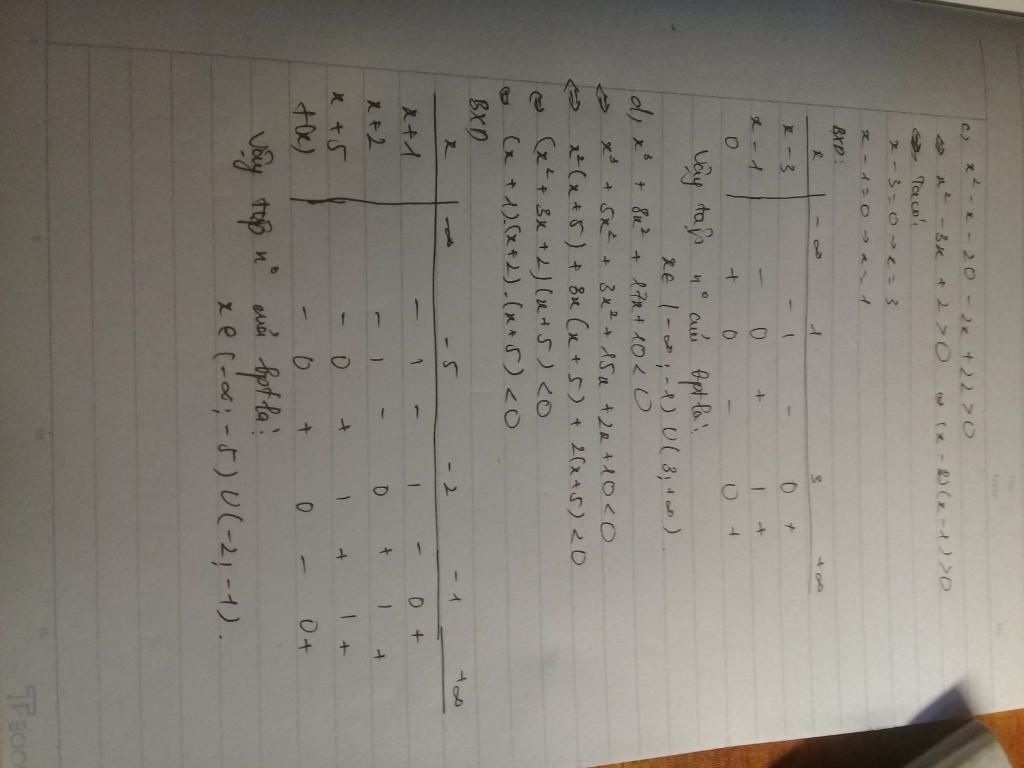 c) x² - x - 20 - 2x + 22 > 0
⇔ x² - 3x + 2 > 0 ⇔ (x - 2)(x - 1) > 0
⇔ Ta có:
x - 3 = 0 → x = 3
x - 1 = 0 → x = 1
BXD:
x -∞ 1 3 +∞
x - 3 - | - 0 +
x - 1 - 0 + | +
0 + 0 - 0 +
Vậy tập n° của bpt là:
x ∈ (-∞; -1) ∪ (3; +∞).
d, x³ + 8x² + 17x + 10 < 0
⇔ x³ + 5x² + 3x² + 15x + 2x + 10 < 0
⇔ x²(x + 5) + 3x(x + 5) + 2(x + 5) < 0
⇔ (x² + 3x + 2)(x + 5) < 0
⇔ (x + 1)(x + 2).(x + 5) < 0
BXD
x -∞ -5 -2 -1 +∞
x + 1 - | - | - 0 +
x + 2 - | - 0 + | +
x + 5 - 0 + | + | +
f(x) - 0 + 0 - 0 +
Vậy tập n° của bpt là:
x ∈ (-∞; -5) ∪ (-2; -1).